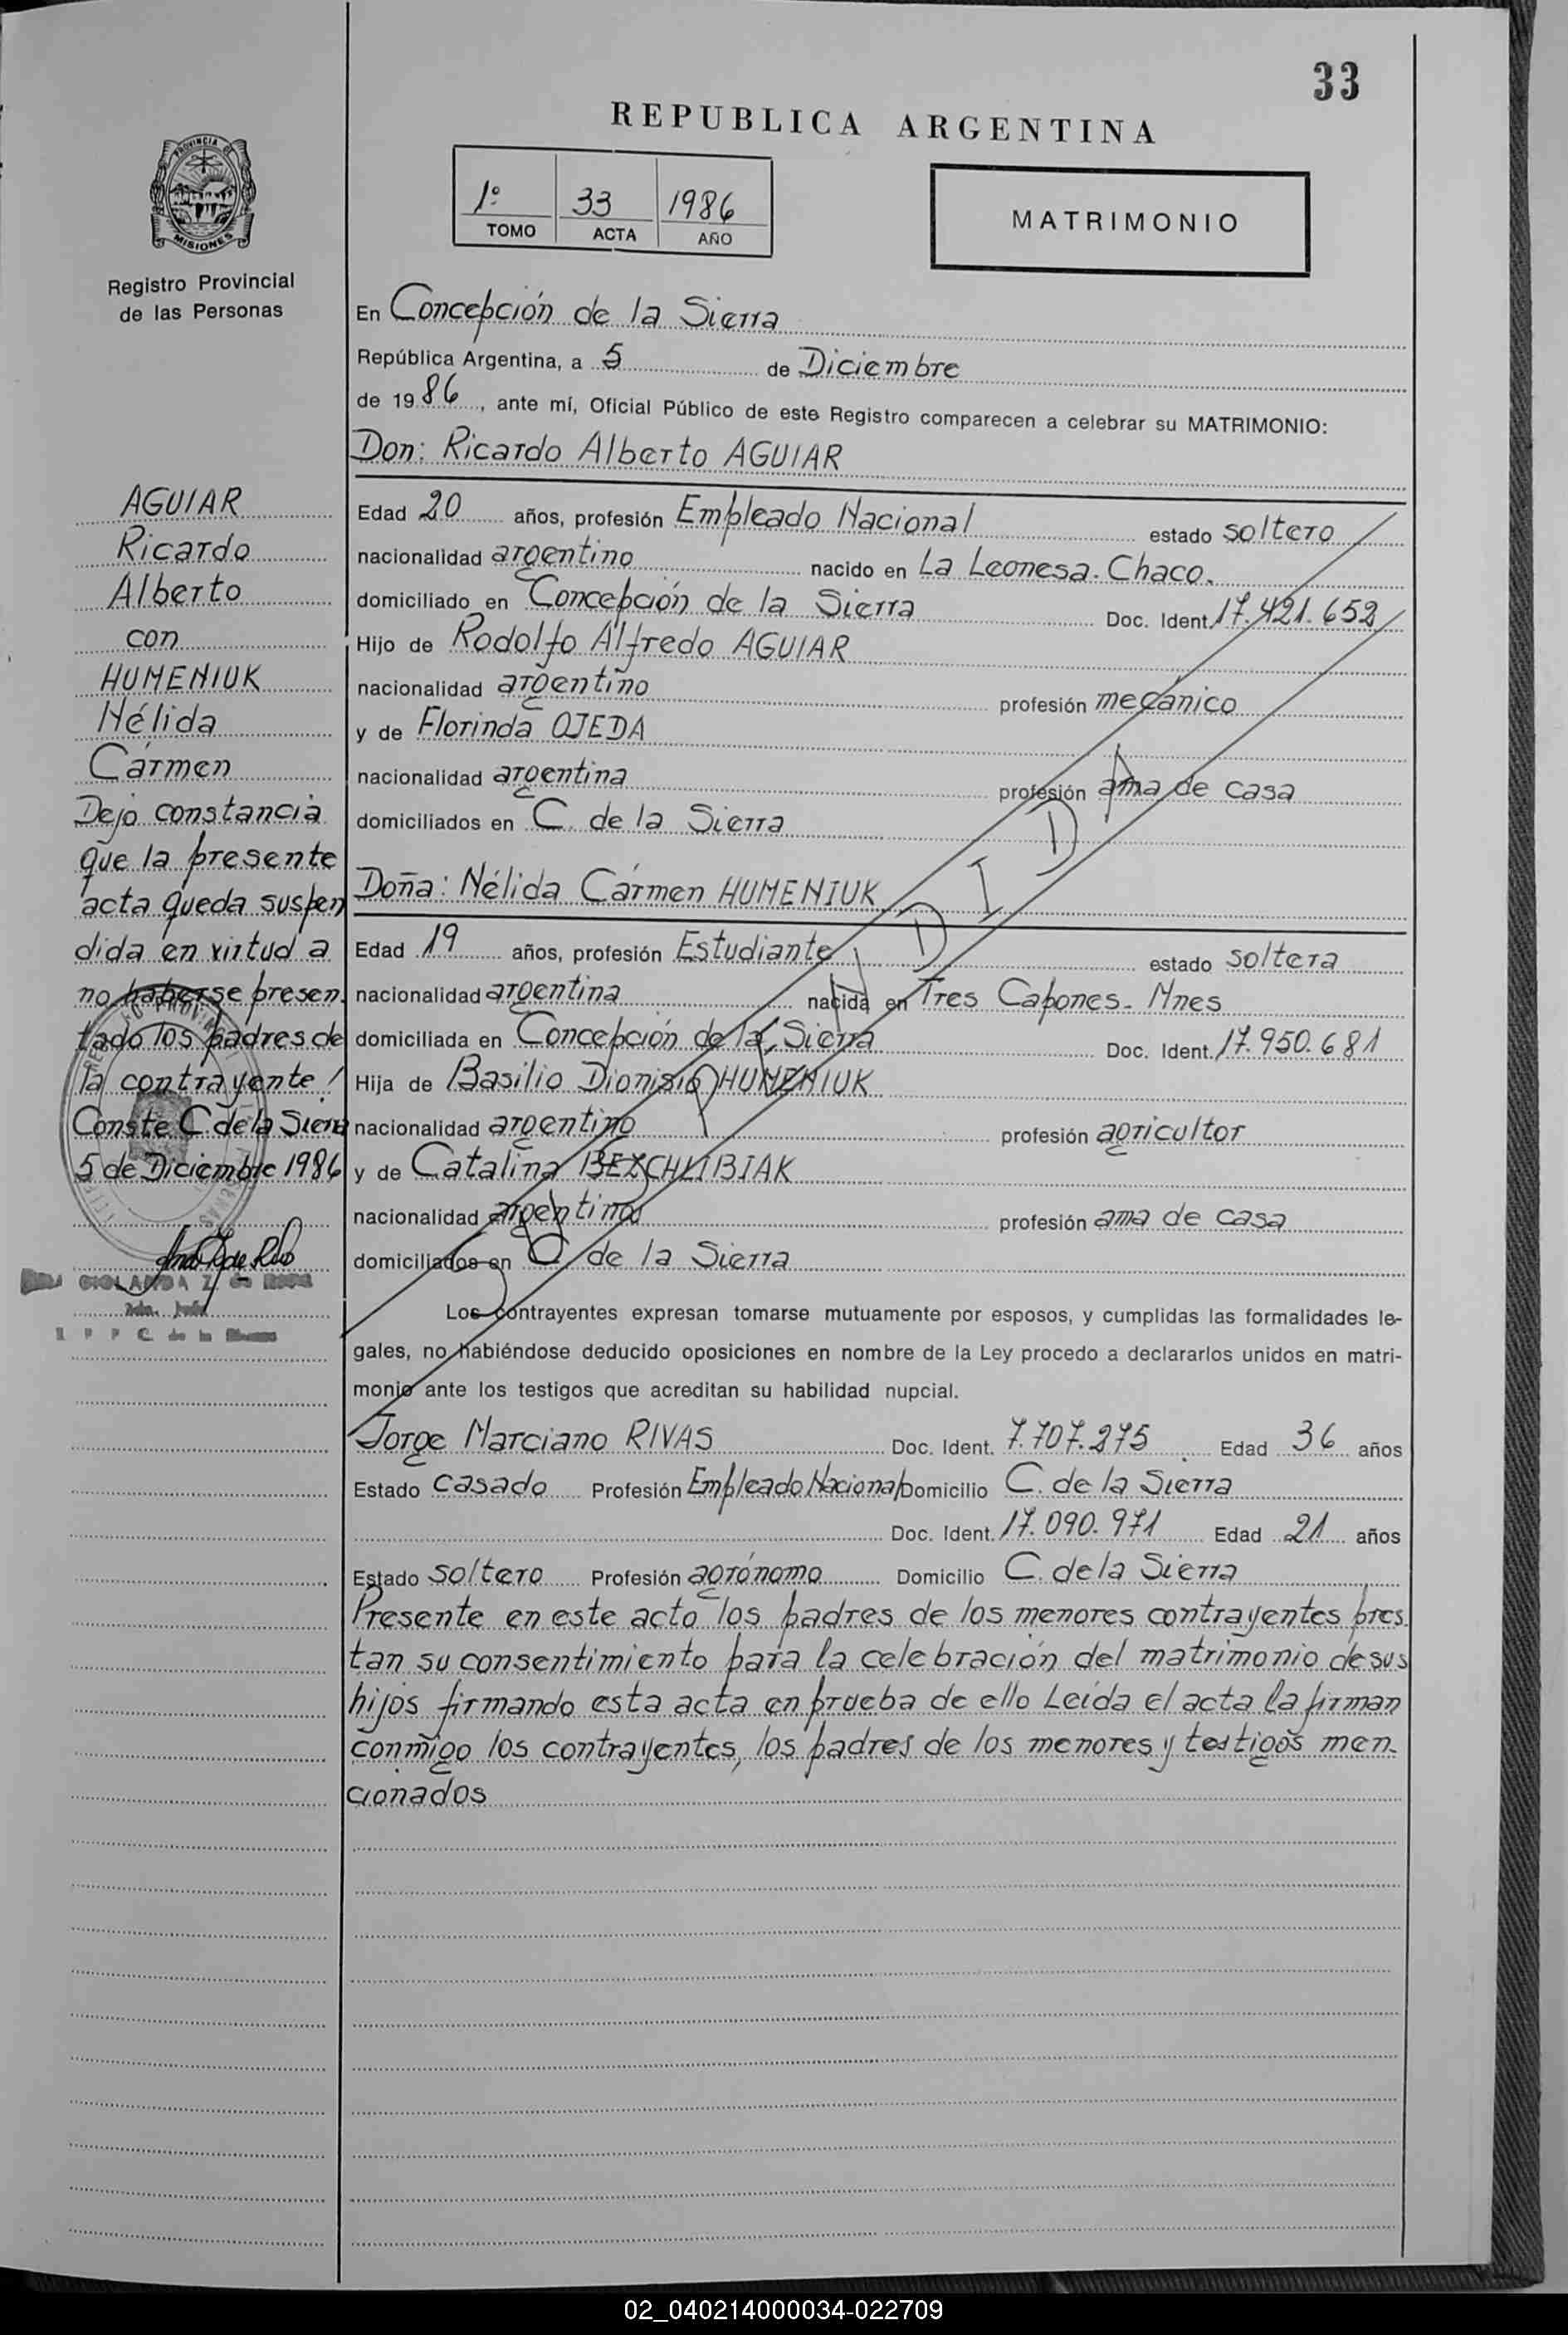 33
REPUBLICA ARGENTINA
PROVINCIA DE
MISIONES
Registro Provincial
de las Personas
1º 33 1986
TOMO ACTA AÑO
MATRIMONIO
En Concepción de la Sierra
República Argentina, a 5 de Diciembre
de 1986, ante mí, Oficial Público de este Registro comparecen a celebrar su MATRIMONIO:
Don: Ricardo Alberto AGUIAR
Edad 20 años, profesión Empleado Nacional estado soltero
nacionalidad argentino nacido en La Leonesa. Chaco.
domiciliado en Concepción de la Sierra Doc. Ident. 17.421.652
Hijo de Rodolfo Alfredo AGUIAR
nacionalidad argentino profesión mecánico
y de Florinda OJEDA
nacionalidad argentina profesión ama de casa
domiciliados en C. de la Sierra
Doña: Nélida Carmen HUMENIUK
Edad 19 años, profesión Estudiante estado soltera
nacionalidad argentina nacida en Tres Capones. Mnes
domiciliada en Concepción de la Sierra Doc. Ident. 17.950.681
Hija de Basilio Dionisio HUMENIUK
nacionalidad argentino profesión agricultor
y de Catalina BEZCHLIBIAK
nacionalidad argentina profesión ama de casa
domiciliados en C de la Sierra
SUSPENDIDA
Los contrayentes expresan tomarse mutuamente por esposos, y cumplidas las formalidades le-
gales, no habiéndose deducido oposiciones en nombre de la Ley procedo a declararlos unidos en matri-
monio ante los testigos que acreditan su habilidad nupcial.
Jorge Marciano RIVAS Doc. Ident. 7.707.275 Edad 36 años
Estado casado Profesión Empleado Nacional Domicilio C. de la Sierra
Doc. Ident. 17.090.971 Edad 21 años
Estado soltero Profesión agrónomo Domicilio C. de la Sierra
Presente en este acto los padres de los menores contrayentes pres
tan su consentimiento para la celebración del matrimonio de sus
hijos firmando esta acta en prueba de ello Leída el acta la firman
conmigo los contrayentes, los padres de los menores y testigos men-
cionados
AGUIAR
Ricardo
Alberto
con
HUMENIUK
Nélida
Carmen
Dejo constancia
que la presente
acta queda suspen
dida en virtud a
no haberse presen.
tado los padres de
la contrayente!
Conste C de la Sierra
5 de Diciembre 1986
02_040214000034-022709